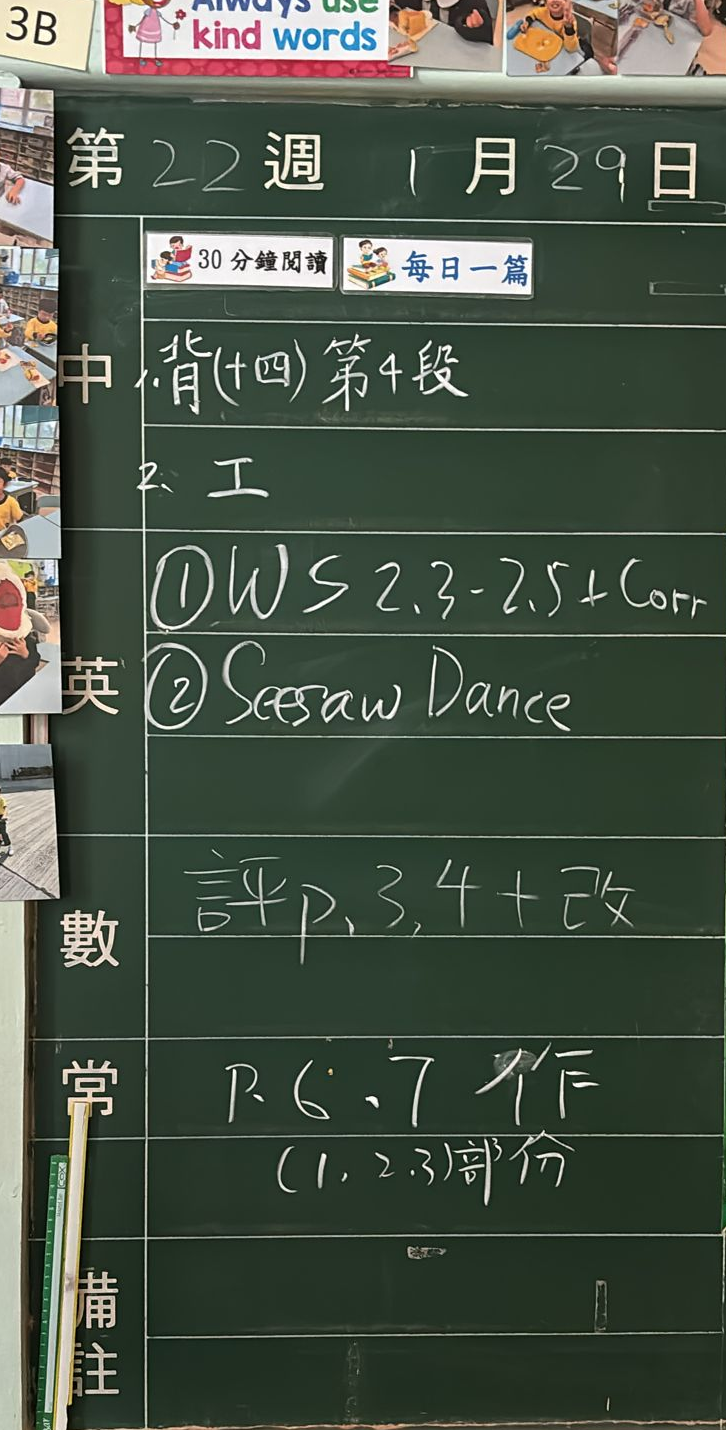 3B
Always use
kind words
第22週 1月29日
30分鐘閱讀 每日一篇
中
1.背(十四)第4段
2、工
英
①WS 2.3-2.5+Corr
②Seesaw Dance
數
評p.3,4+改
常
P.6、7 作
(1.2.3)部份
備註